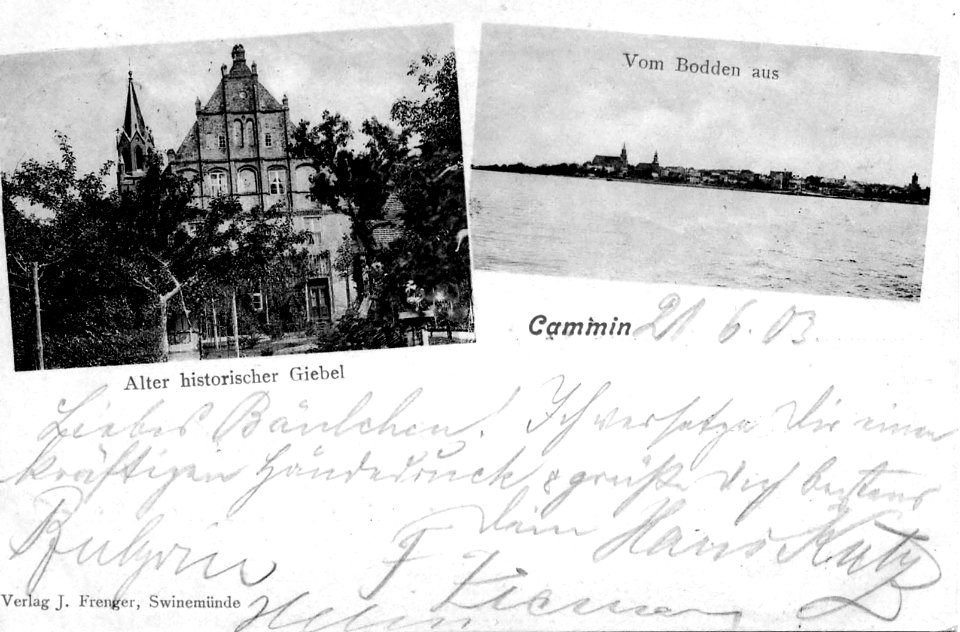 Vom Bodden aus
Cammin 21. 6. 03.
Alter historischer Giebel
Liebes! Ich versetze Dir einen
kräftigen Händedruck & grüße Dich bestens
Dein Hans
F.
Verlag J. Frenger, Swinemünde